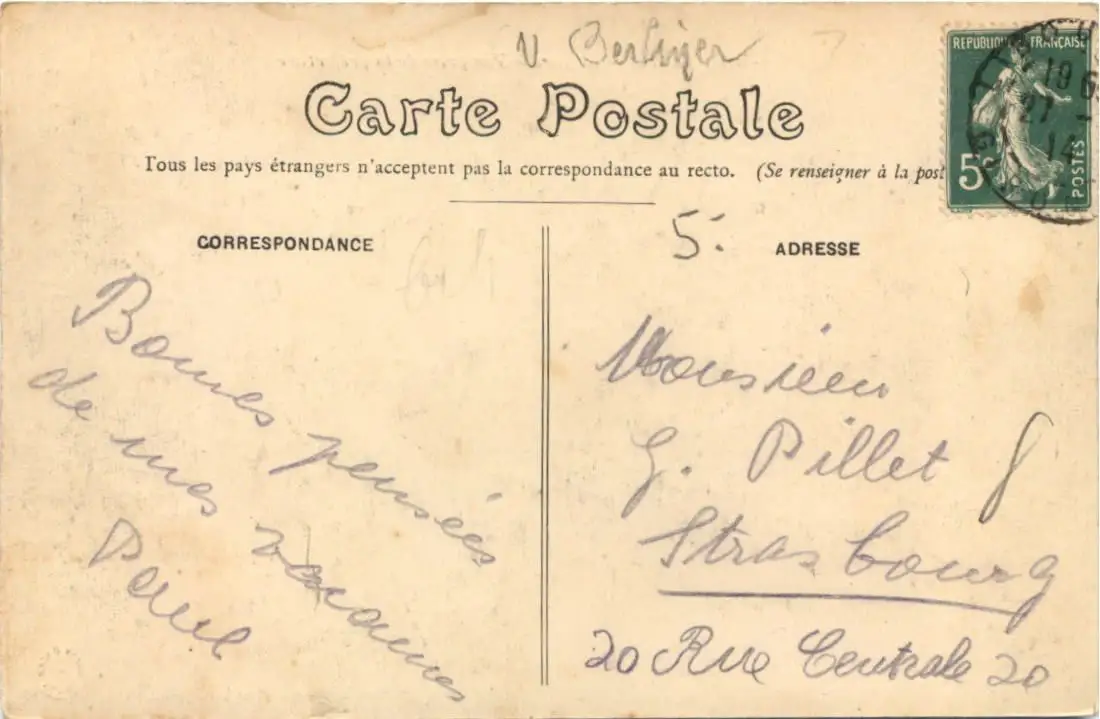 V. Berliyer
Carte Postale
Tous les pays étrangers n'acceptent pas la correspondance au recto. (Se renseigner à la post
RÉPUBLIQUE FRANÇAISE
5c
POSTES
27 -
14
5.
CORRESPONDANCE
ADRESSE
Bonnes pensées
de mes vacances
Paul
Monsieur
G. Pillet
Strasbourg
20 Rue Centrale 20